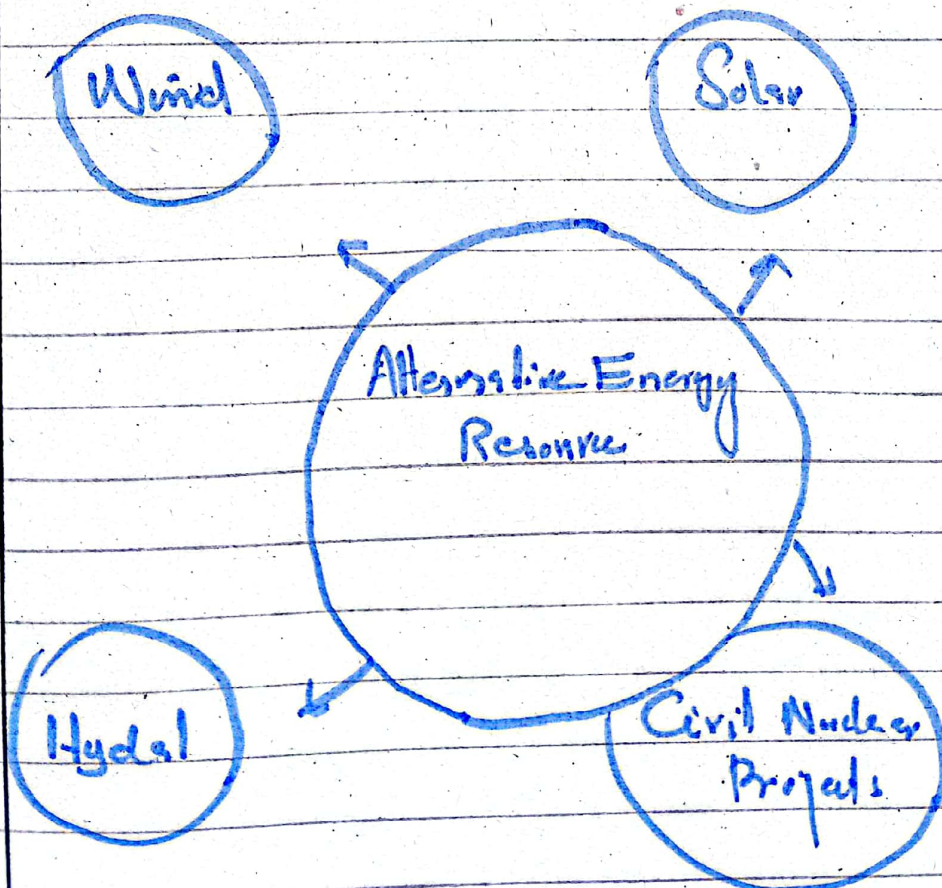 Wind
Solar
Alternative Energy
Resource
Hydal
Civil Nuclear
Projects